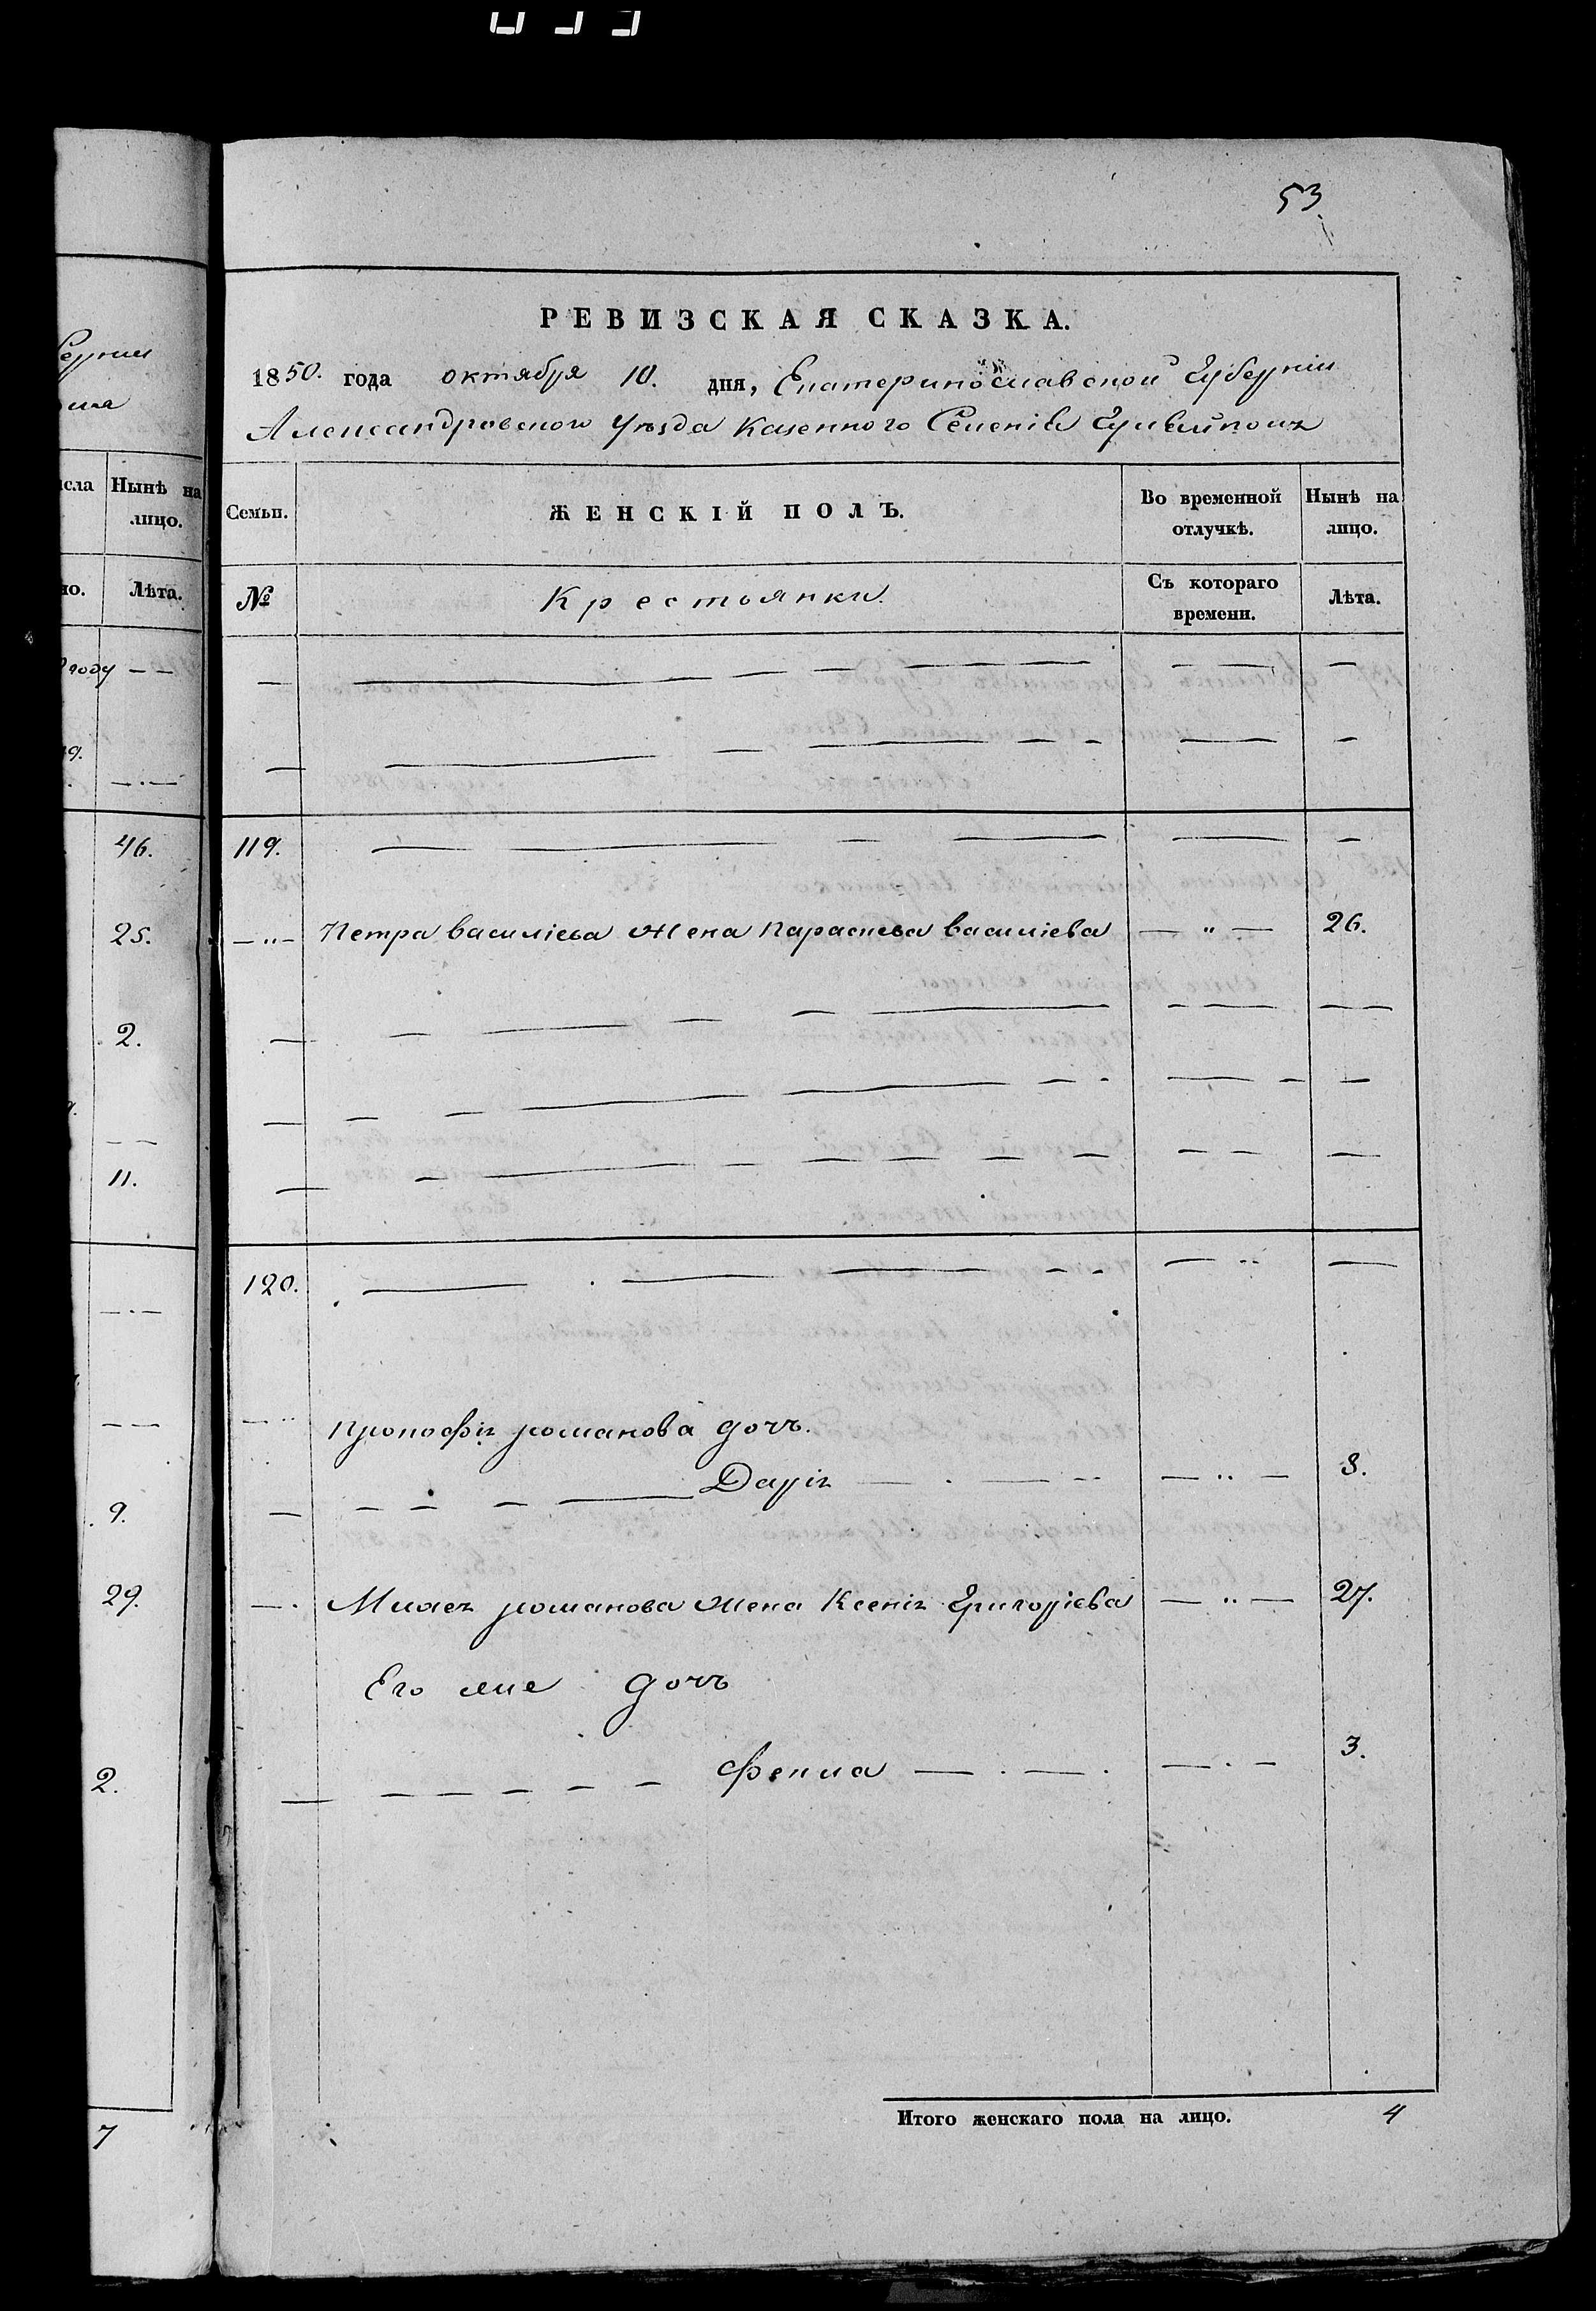 53
РЕВИЗСКАЯ СКАЗКА.
1850. года октября 10. дня, Екатеринославской Губерніи
Александровского Уѣзда Казенного Селенія
исла Нынѣ на лицо.
Семьи. ЖЕНСКІЙ ПОЛЪ. Во временной отлучкѣ. Нынѣ на лицо.
но. Лѣта.
№ Крестьянки. Съ котораго времени. Лѣта.
году — —
46.
119. — — — — — —
25.
—„— Петра василіева жена Параскева василіева — „ — 26.
2.
11.
120. — — — — — —
— „ Прокофія романова дочь.
— — — — — Дарія — . — -- — .. — 8.
9.
29.
— . Михея романова жена Ксенія Григоріева — .. — 27.
Его же дочь
2.
— — — — — — Фекла — . — . — . — 3.
Итого женскаго пола на лицо. 4
7